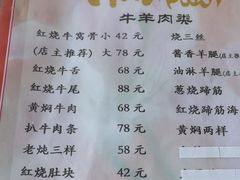 牛羊肉类
红烧牛窝骨 小 42 元 烧三丝
(店主推荐) 大 78 元 酱香羊腿(店
红烧牛舌 68 元 油淋羊腿(店主
红烧牛尾 88 元 葱烧蹄筋
黄焖牛肉 68 元 红烧蹄筋
扒牛肉条 78 元 黄焖两样
老炖三样 58 元
红烧肚块 42 元